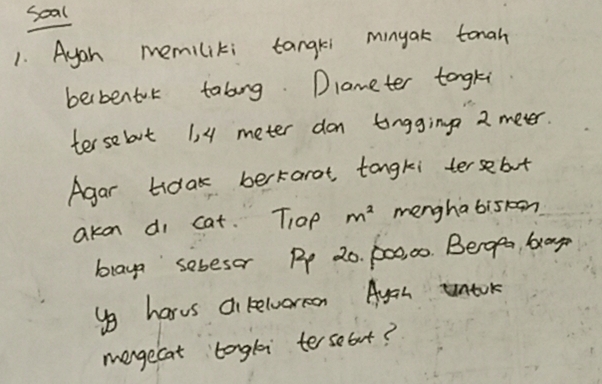 Soal
1. Ayah memiliki tangki minyak tanah
berbentuk tabung. Diameter tangki
tersebut 1,4 meter dan tingginya 2 meter.
Agar tidak berkarat, tangki tersebut
akan di cat. Tiap m² menghabiskan
biaya sebesar Rp 20.000,00. Berapa biaya
yg harus dikeluarkan Ayah untuk
mengecat tangki tersebut?